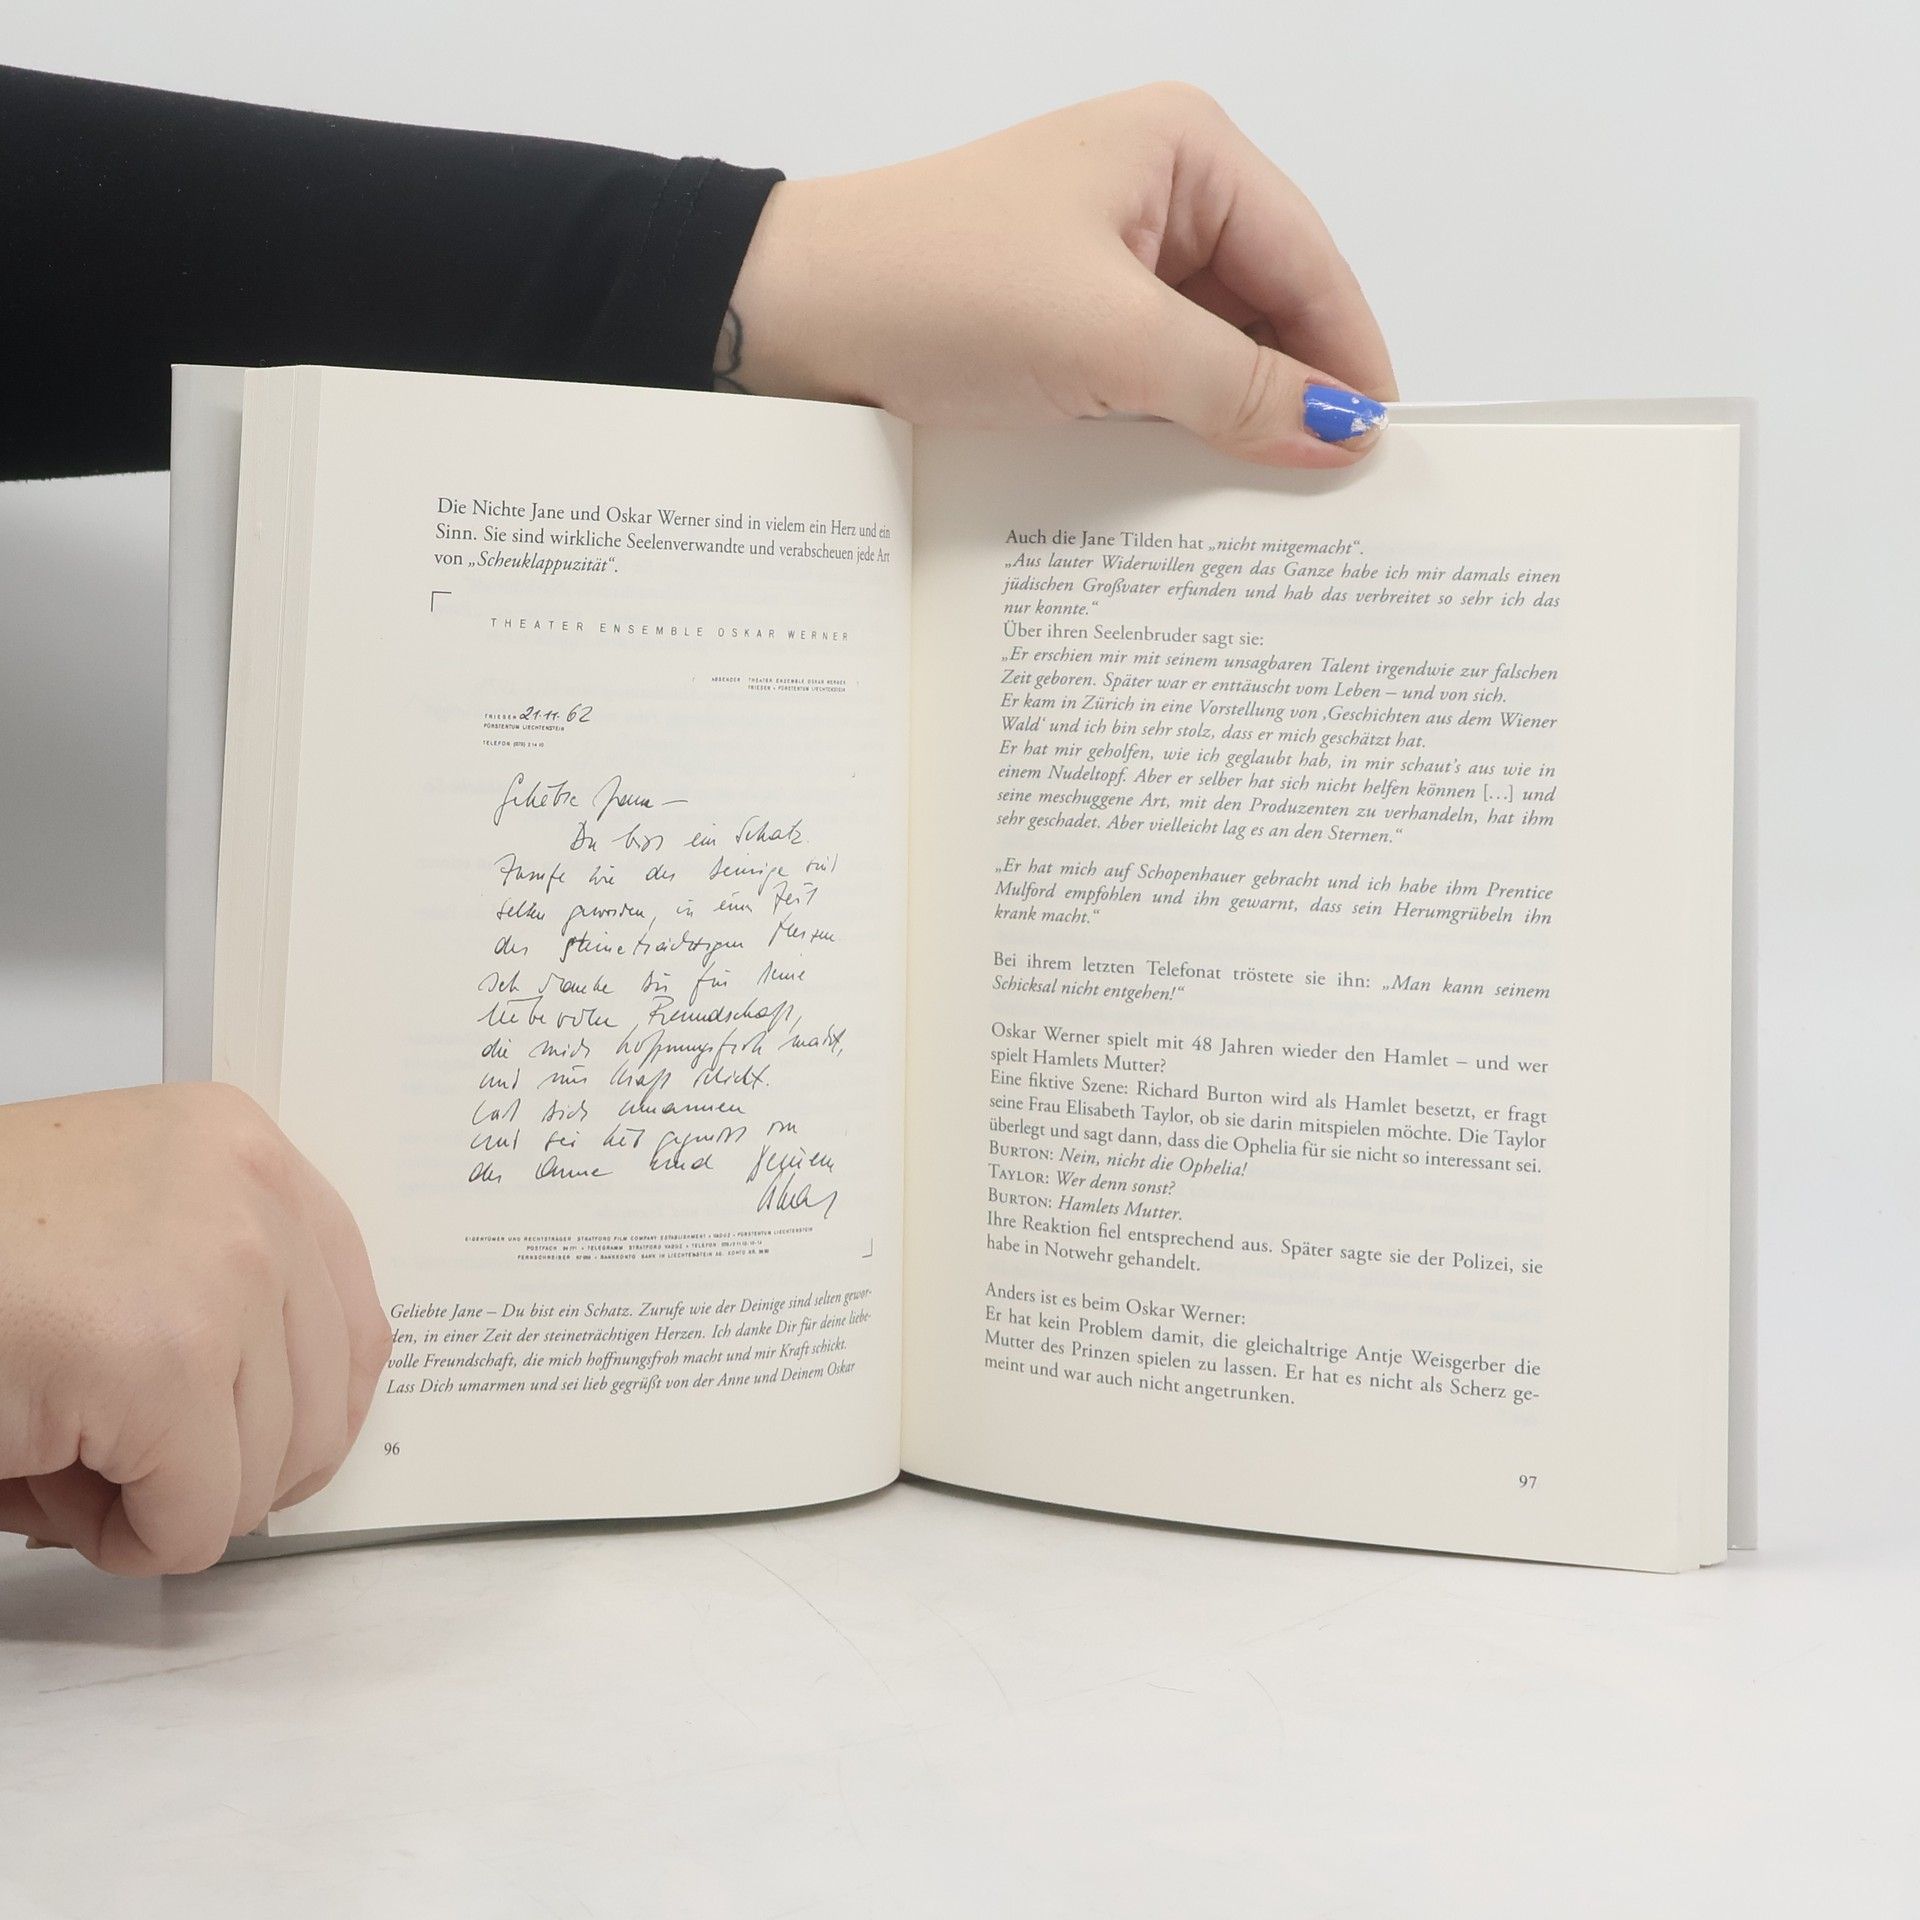 Die Nichte Jane und Oskar Werner sind in vielem ein Herz und ein
Sinn. Sie sind wirkliche Seelenverwandte und verabscheuen jede Art
von „Scheuklappuzität“.
THEATER ENSEMBLE OSKAR WERNER
ABSENDER THEATER ENSEMBLE OSKAR WERNER
TRIESEN • FÜRSTENTUM LIECHTENSTEIN
TRIESEN 21.11.62
FÜRSTENTUM LIECHTENSTEIN
TELEFON (075) 2 14 10
Geliebte Jane –
Du bist ein Schatz.
Zurufe wie der Deinige sind
selten geworden, in einer Zeit
der steineträchtigen Herzen
Ich danke Dir für deine
liebevolle Freundschaft,
die mich hoffnungsfroh macht,
und mir Kraft schickt.
Lass Dich umarmen
und sei lieb gegrüßt von
der Anne und Deinem
Oskar
EIGENTÜMER UND RECHTSTRÄGER STRATFORD FILM COMPANY ESTABLISHMENT • VADUZ • FÜRSTENTUM LIECHTENSTEIN
POSTFACH • TELEGRAMM STRATFORD VADUZ • TELEFON
FERNSCHREIBER • BANKKONTO BANK IN LIECHTENSTEIN AG. KONTO NR.
Geliebte Jane – Du bist ein Schatz. Zurufe wie der Deinige sind selten gewor-
den, in einer Zeit der steineträchtigen Herzen. Ich danke Dir für deine liebe-
volle Freundschaft, die mich hoffnungsfroh macht und mir Kraft schickt.
Lass Dich umarmen und sei lieb gegrüßt von der Anne und Deinem Oskar
96
Auch die Jane Tilden hat „nicht mitgemacht“.
„Aus lauter Widerwillen gegen das Ganze habe ich mir damals einen
jüdischen Großvater erfunden und hab das verbreitet so sehr ich das
nur konnte.“
Über ihren Seelenbruder sagt sie:
„Er erschien mir mit seinem unsagbaren Talent irgendwie zur falschen
Zeit geboren. Später war er enttäuscht vom Leben – und von sich.
Er kam in Zürich in eine Vorstellung von ‚Geschichten aus dem Wiener
Wald‘ und ich bin sehr stolz, dass er mich geschätzt hat.
Er hat mir geholfen, wie ich geglaubt hab, in mir schaut’s aus wie in
einem Nudeltopf. Aber er selber hat sich nicht helfen können […] und
seine meschuggene Art, mit den Produzenten zu verhandeln, hat ihm
sehr geschadet. Aber vielleicht lag es an den Sternen.“
„Er hat mich auf Schopenhauer gebracht und ich habe ihm Prentice
Mulford empfohlen und ihn gewarnt, dass sein Herumgrübeln ihn
krank macht.“
Bei ihrem letzten Telefonat tröstete sie ihn: „Man kann seinem
Schicksal nicht entgehen!“
Oskar Werner spielt mit 48 Jahren wieder den Hamlet – und wer
spielt Hamlets Mutter?
Eine fiktive Szene: Richard Burton wird als Hamlet besetzt, er fragt
seine Frau Elisabeth Taylor, ob sie darin mitspielen möchte. Die Taylor
überlegt und sagt dann, dass die Ophelia für sie nicht so interessant sei.
BURTON: Nein, nicht die Ophelia!
TAYLOR: Wer denn sonst?
BURTON: Hamlets Mutter.
Ihre Reaktion fiel entsprechend aus. Später sagte sie der Polizei, sie
habe in Notwehr gehandelt.
Anders ist es beim Oskar Werner:
Er hat kein Problem damit, die gleichaltrige Antje Weisgerber die
Mutter des Prinzen spielen zu lassen. Er hat es nicht als Scherz ge-
meint und war auch nicht angetrunken.
97